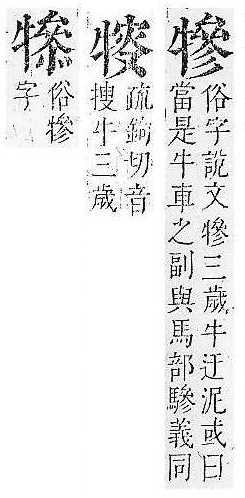 犙
俗字說文犙三歲牛迂泥或曰
當是牛車之副與馬部驂義同
疏鉤切音
搜牛三歲
俗犙
字